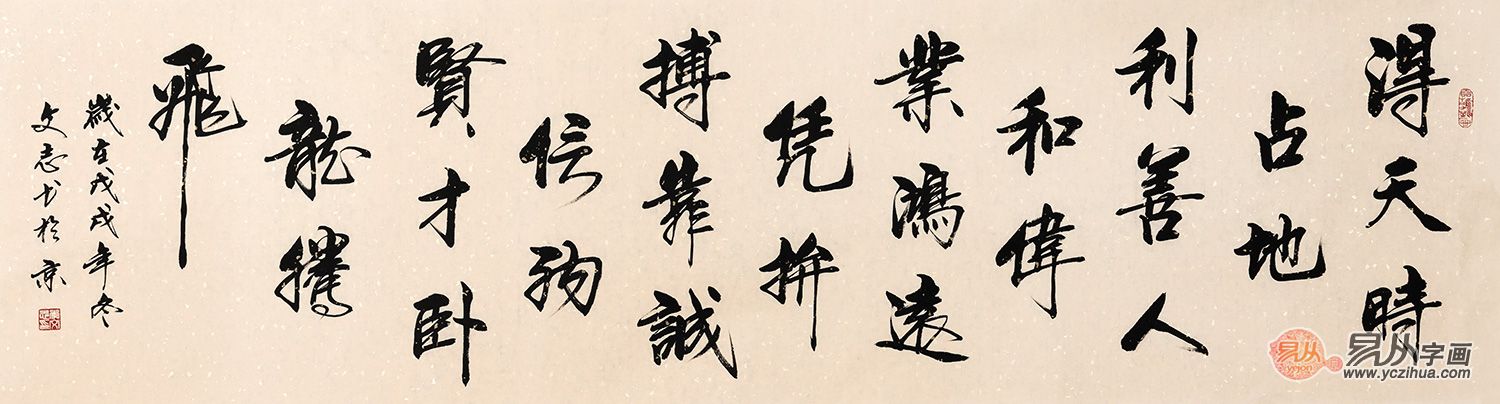 得天時
占地
利善人
和偉
業鴻遠
凭拚
搏靠誠
信
賢才卧
龍騰
飛
歲在戊戌年冬
文志书於京
易从
易从字画
www.yczihua.com